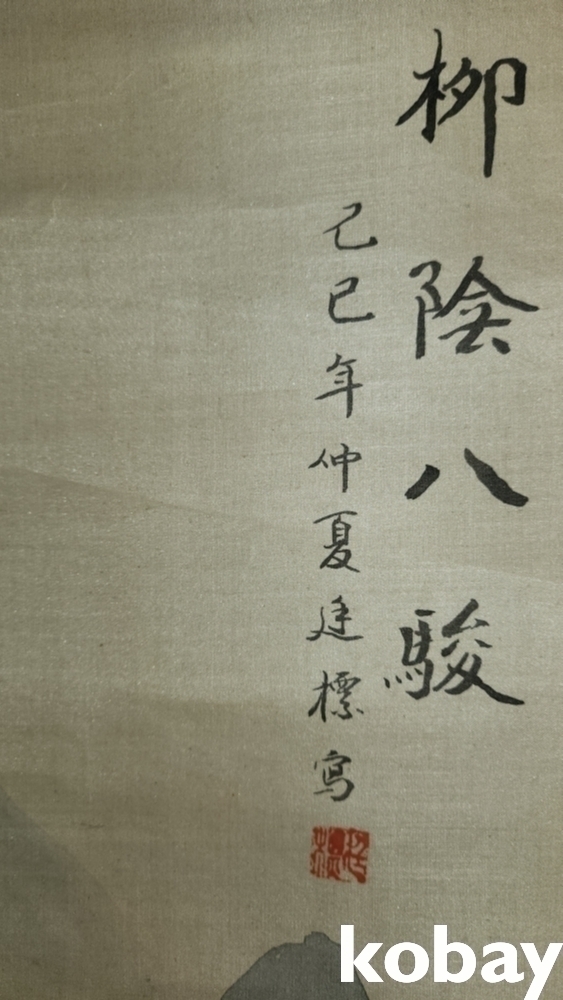 柳陰八駿
己巳年仲夏廷標写
kobay